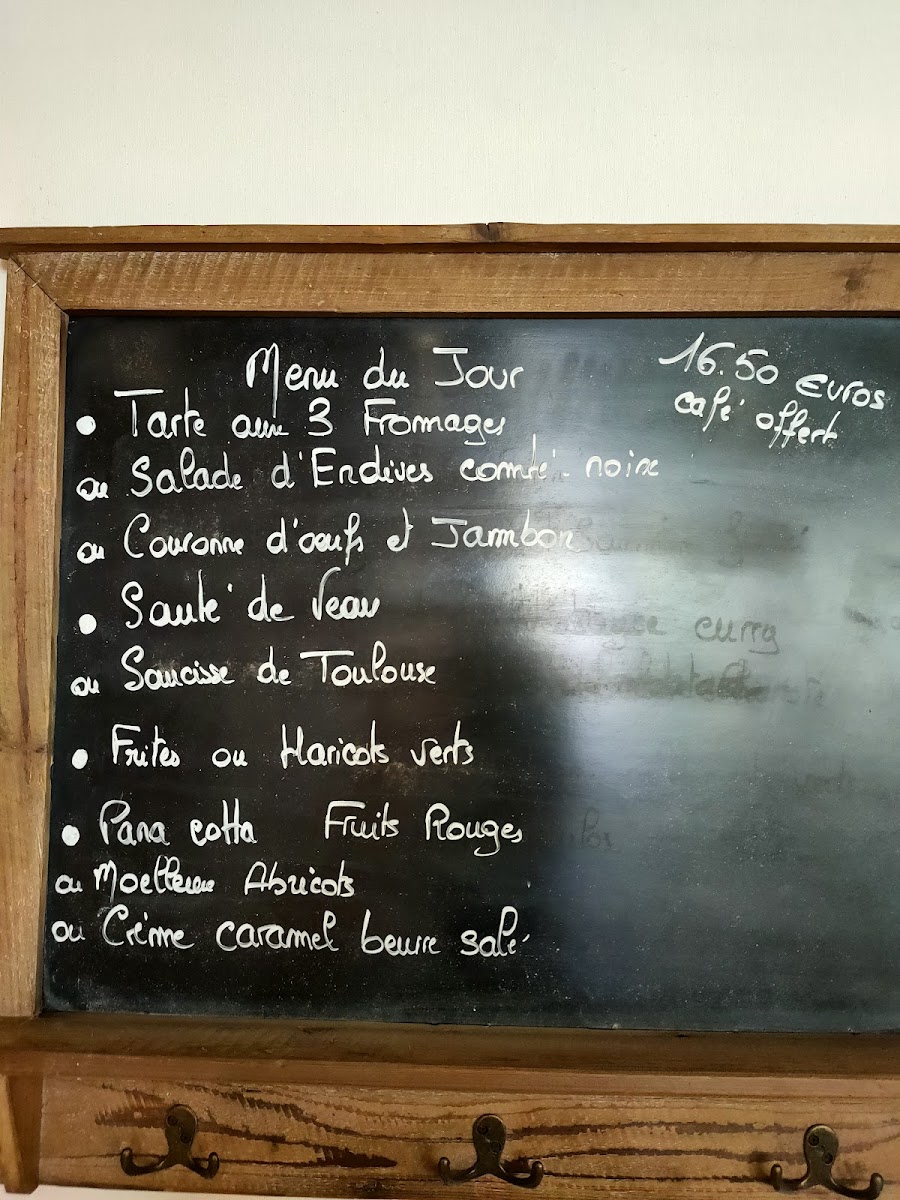 Menu du Jour
16.50 Euros
café offert
• Tarte aux 3 Fromages
ou Salade d'Endives comté noix
ou Couronne d'oeufs et Jambon
• Sauté de Veau
ou Saucisse de Toulouse
• Frites ou Haricots verts
• Pana cotta Fruits Rouges
ou Moelleux Abricots
ou Crème caramel beurre salé
curry